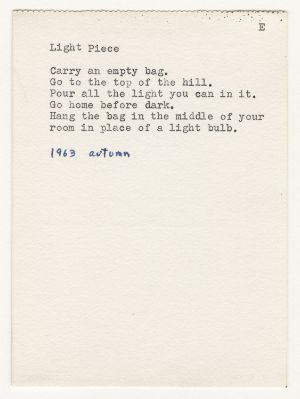 E
Light Piece
Carry an empty bag.
Go to the top of the hill.
Pour all the light you can in it.
Go home before dark.
Hang the bag in the middle of your
room in place of a light bulb.
1963 autumn